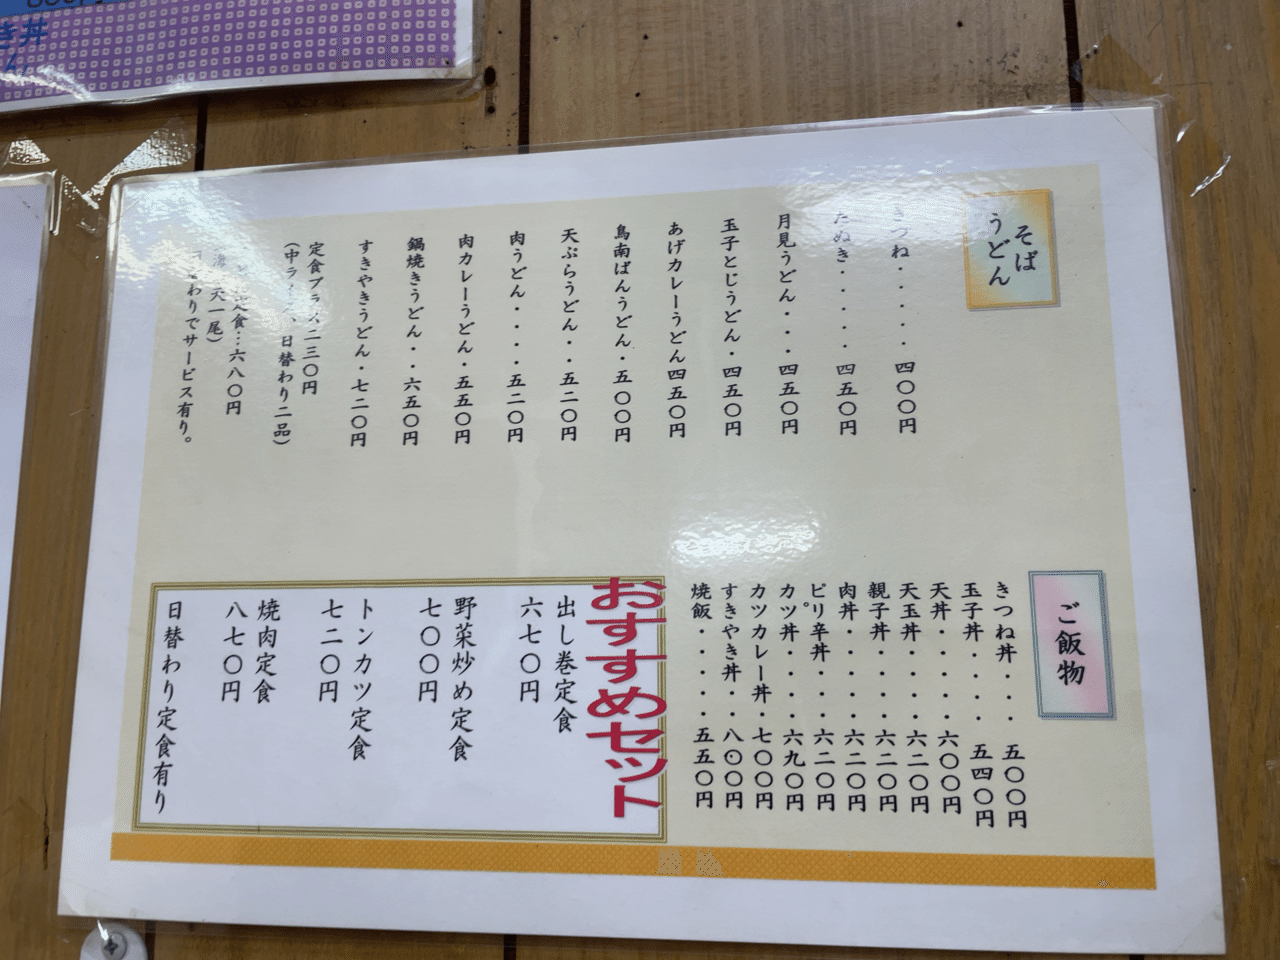 き丼
そば
うどん
きつね・・・・・四〇〇円
たぬき・・・・・四五〇円
月見うどん・・・四五〇円
玉子とじうどん・四五〇円
あげカレーうどん四五〇円
鳥南ばんうどん・五〇〇円
天ぷらうどん・・五二〇円
肉うどん・・・・五二〇円
肉カレーうどん・五五〇円
鍋焼きうどん・・六五〇円
すきやきうどん・七二〇円
定食プラス二三〇円
(中ライス、日替わり二品)
定食…六八〇円
天一尾)
わりでサービス有り。
ご飯物
きつね丼・・・五〇〇円
玉子丼・・・・五四〇円
天丼・・・・・六〇〇円
天玉丼・・・・六二〇円
親子丼・・・・六二〇円
肉丼・・・・・六二〇円
ピリ辛丼・・・六二〇円
カツ丼・・・・六九〇円
カツカレー丼・七〇〇円
すきやき丼・・八〇〇円
焼飯・・・・・五五〇円
おすすめセット
出し巻定食
六七〇円
野菜炒め定食
七〇〇円
トンカツ定食
七二〇円
焼肉定食
八七〇円
日替わり定食有り